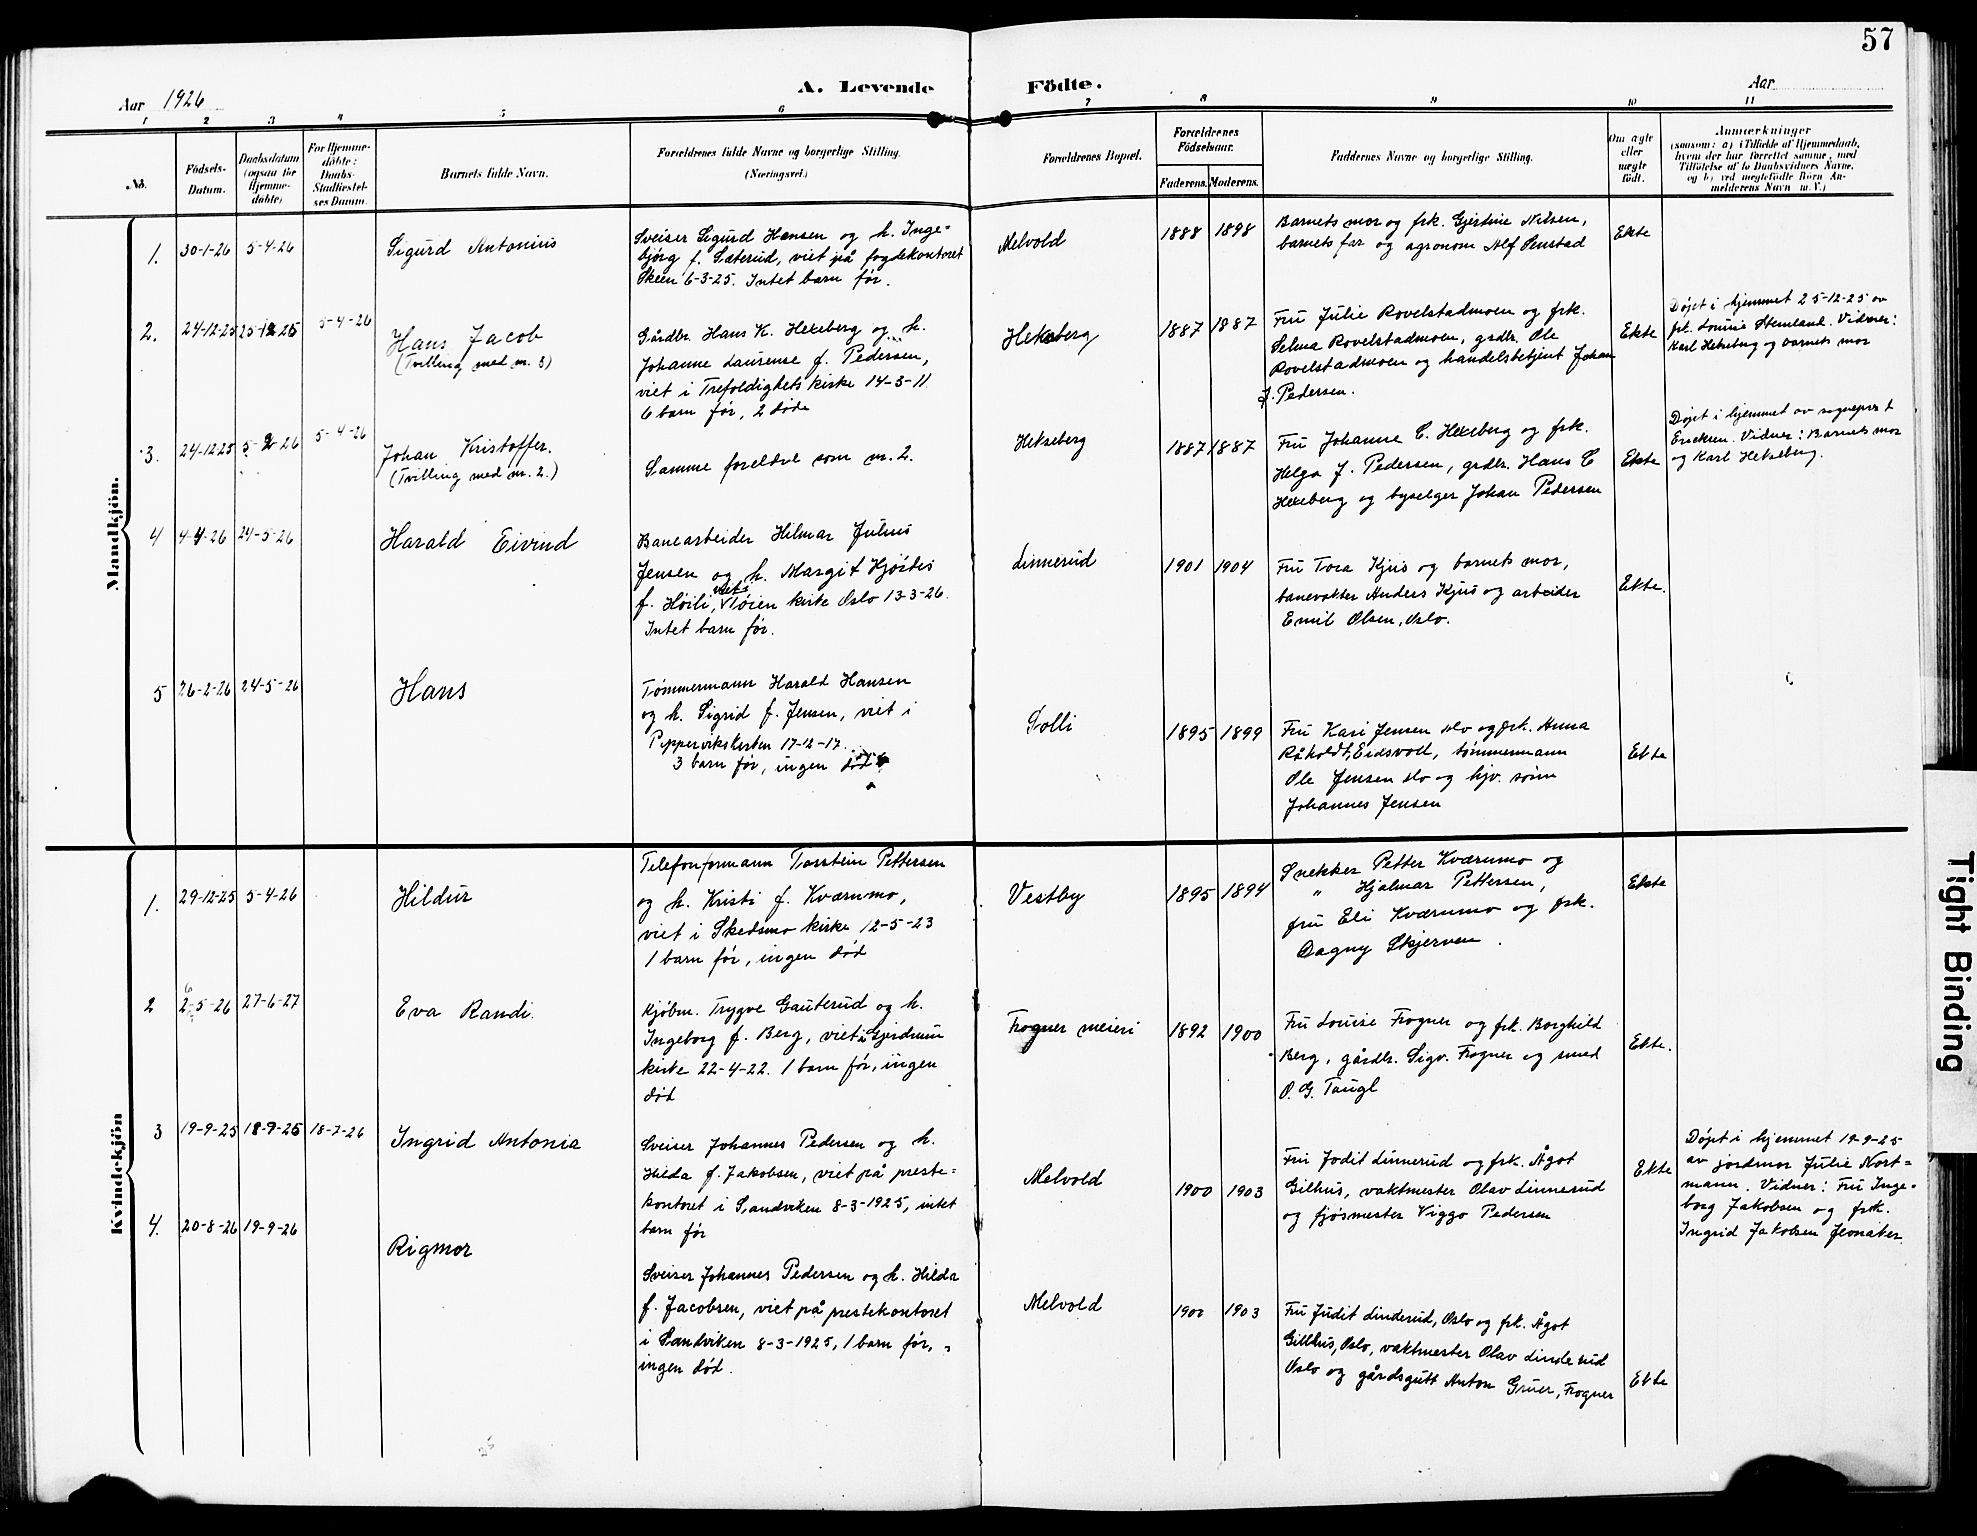 57
A. Levende Födte.
Aar 1926
Aar
1 2 3 4 5 6 7 8 9 10 11
No.
Födsels-
Datum.
Daabsdatum
(ogsaa för
Hjemme-
döbte)
For Hjemme-
döbte:
Daabs-
Stadfæstel-
ses Datum.
Barnets fulde Navn.
Forældrenes fulde Navne og borgerlige Stilling.
(Næringsvei.)
Forældrenes Bopæl.
Forældrenes
Födselsaar.
Faderens. Moderens.
Faddernes Navne og borgerlige Stilling.
Om ægte
eller
uægte
födt.
Anmærkninger
(saasom: a) i Tilfælde af Hjemmedaab,
hvem der har forrettet samme, med
Tilföielse af to Daabsvidners Navne,
og b) ved uægtefödte Börn An-
melderens Navn m. V.)
Mandkjön.
1. 30-1-26 5-4-26
Sigurd Antonius
Sveiser Sigurd Hansen og h. Inge-
bjørg f. Sæterud, viet på fogdekontoret
Skeen 6-3-25. Intet barn før.
Melvold
1888 1898
Barnets mor og frk. Gjertine Nilsen,
barnets far og agronom Alf Senstad
Ekte
2. 24-12-25 25-12-25 5-4-26
Hans Jacob
(Tvilling med nr. 3)
Gårdbr. Hans K. Hexeberg og h.
Johanne Laurense f. Pedersen,
viet i Trefoldighets kirke 14-3-11
6 barn før, 2 døde
Hekseberg
1887 1887
Fru Julie Rovelstadmoen og frk.
Selma Rovelstadmoen, grdbr. Ole
Rovelstadmoen og handelsbetjent Johan
J. Pedersen.
Ekte
Døpt i hjemmet 25-12-25 av
frk. Louise Stemland. Vidner:
Karl Hekseberg og barnets mor
3. 24-12-25 5-2-26 5-4-26
Johan Kristoffer.
(Tvilling med nr. 2.)
Samme foreldre som nr. 2.
Hekseberg
1887 1887
Fru Johanne C. Hexeberg og frk.
Helga J. Pedersen, grdbr. Hans C
Hexeberg og byselger Johan Pedersen
Ekte
Døpt i hjemmet av sogneprest
Ericksen. Vidner: Barnets mor
og Karl Hekseberg.
4 4-4-26 24-5-26
Harald Eivind
Banearbeider Hilmar Julius
Jensen og h. Margit Hjørdis
f. Høili, viet i Tøien kirke Oslo 13-3-26.
Intet barn før.
Linnerud
1901 1904
Fru Tora Kjus og barnets mor,
banevokter Anders Kjus og arbeider
Emil Olsen, Oslo.
Ekte.
5 26-2-26 24-5-26
Hans
Tømmermann Harald Hansen
og h. Sigrid f. Jensen, viet i
Pippervikskirken 17-12-17.
3 barn før, ingen død
Dolli
1895 1899
Fru Kari Jensen slv og frk. Anna
Råholdt, Eidsvoll, tømmermann
Ole Jensen slv og hjv. sønn
Johannes Jensen
Ekte
Kvindekjön
1. 29-12-25 5-4-26
Hildur
Telefonformann Torstein Pettersen
og h. Kristi f. Kværnmo,
viet i Skedsmo kirke 12-5-23
1 barn før, ingen død
Vestby
1895 1894
Snekker Petter Kværnmo og
" Hjalmar Pettersen,
fru Eli Kværnmo og frk.
Dagny Skjerven.
Ekte
2 26-5-26 27-6-27
Eva Randi.
Kjøbm. Trygve Gauterud og h.
Ingeborg f. Berg, viet i Gjerdrum
kirke 22-4-22. 1 barn før, ingen
død
Frogner meieri
1892 1900
Fru Louise Frogner og frk. Borghild
Berg, gårdbr. Sigv. Frogner og smed
O. G. Taugl
Ekte.
3 19-9-25 18-9-25 18-7-26
Ingrid Antonia
Sveiser Johannes Pedersen og h.
Hilda f. Jakobsen, viet på preste-
kontoret i Sandviken 8-3-1925, intet
barn før
Melvold
1900 1903
Fru Jodit Linnerud og frk. Ågot
Gilhus, vaktmester Olav Linnerud
og fjøsmester Viggo Pedersen
Ekte
Døpt i hjemmet 19-9-25
av jordmor Julie Nort-
mann. Vidner: Fru Inge-
borg Jakobsen og frk.
Ingrid Jakobsen Jevnaker.
4. 20-8-26 19-9-26
Rigmor
Sveiser Johannes Pedersen og h. Hilda
f. Jacobsen, viet på prestekontoret
i Sandviken 8-3-1925, 1 barn før,
ingen død.
Melvold
1900 1903
Fru Judit Linderud, Oslo og frk. Ågot
Gillhus, Oslo, vaktmester Olav Linderud
Oslo og gårdsgutt Anton Gruer, Frogner
Ekte
25
Tight Binding